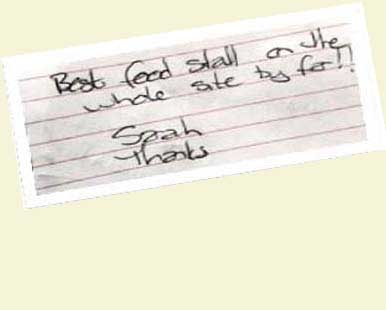 Best food stall on the
whole site by far!!
Sarah
Thanks